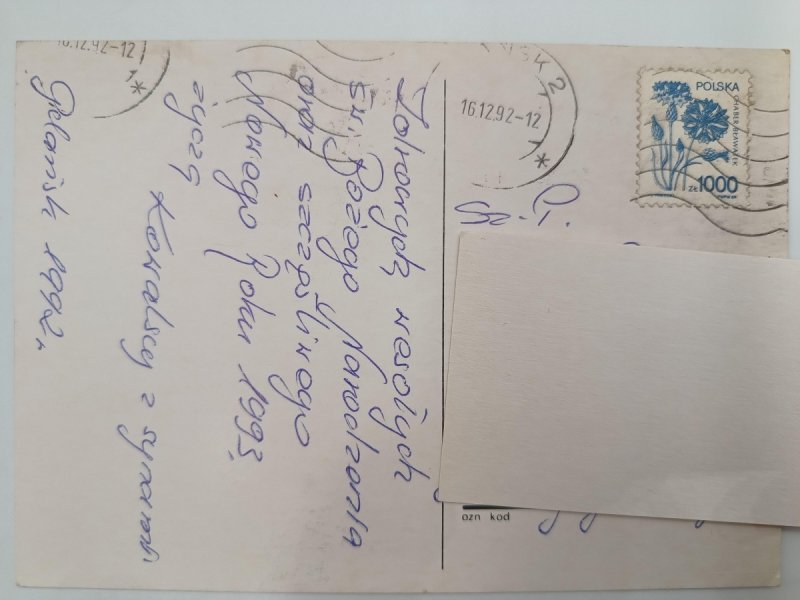 Zdrowych, wesołych
św. Bożego Narodzenia
oraz szczęśliwego
Nowego Roku 1993.
życzą
Kowalscy z synami
Gdańsk 1992r.
16.12.92-12
16.12.92-12
POLSKA
CHABER BŁAWATEK
ZŁ 1000
ozn kod